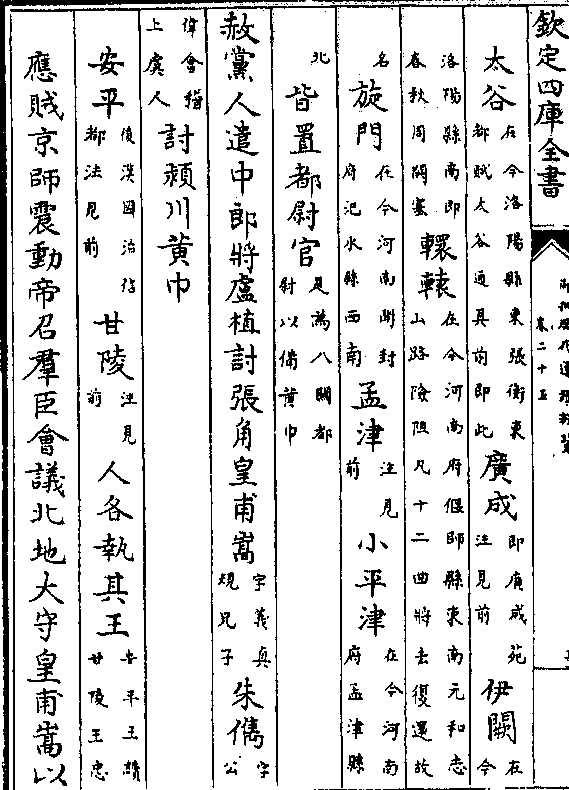 欽定四庫全書
御批歷代通鑑輯覽
卷二十五
太谷在今洛陽縣東張衡東都賦太谷通其前即此廣成即廣成苑注見前伊闕在今
洛陽縣南即春秋周闕塞轘轅在今河南府偃師縣東南元和志山路險阻凡十二曲將去復還故
名旋門在今河南開封府汜水縣西南孟津注見前小平津在今河南府孟津縣
北皆置都尉官是為八關都尉以備黃巾
赦黨人遣中郎將盧植討張角皇甫嵩字義真規兄子朱儁字公
偉會稽上虞人討潁川黃巾
安平後漢國治信都注見前甘陵注見前人各執其王安平王續甘陵王忠
應賊京師震動帝召羣臣會議北地大守皇甫嵩以